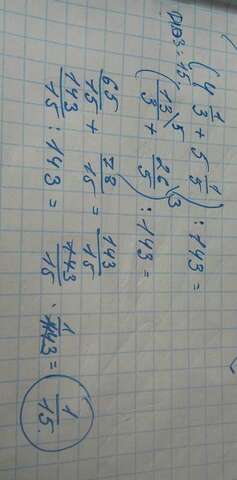 (4 1/3 + 5 1/5) : 143 =
: 15; (13/3 \5 + 26/5 \3) : 143 =
65/15 + 78/15 = 143/15
143/15 : 143 = 143/15 · 1/143 = 1/15.